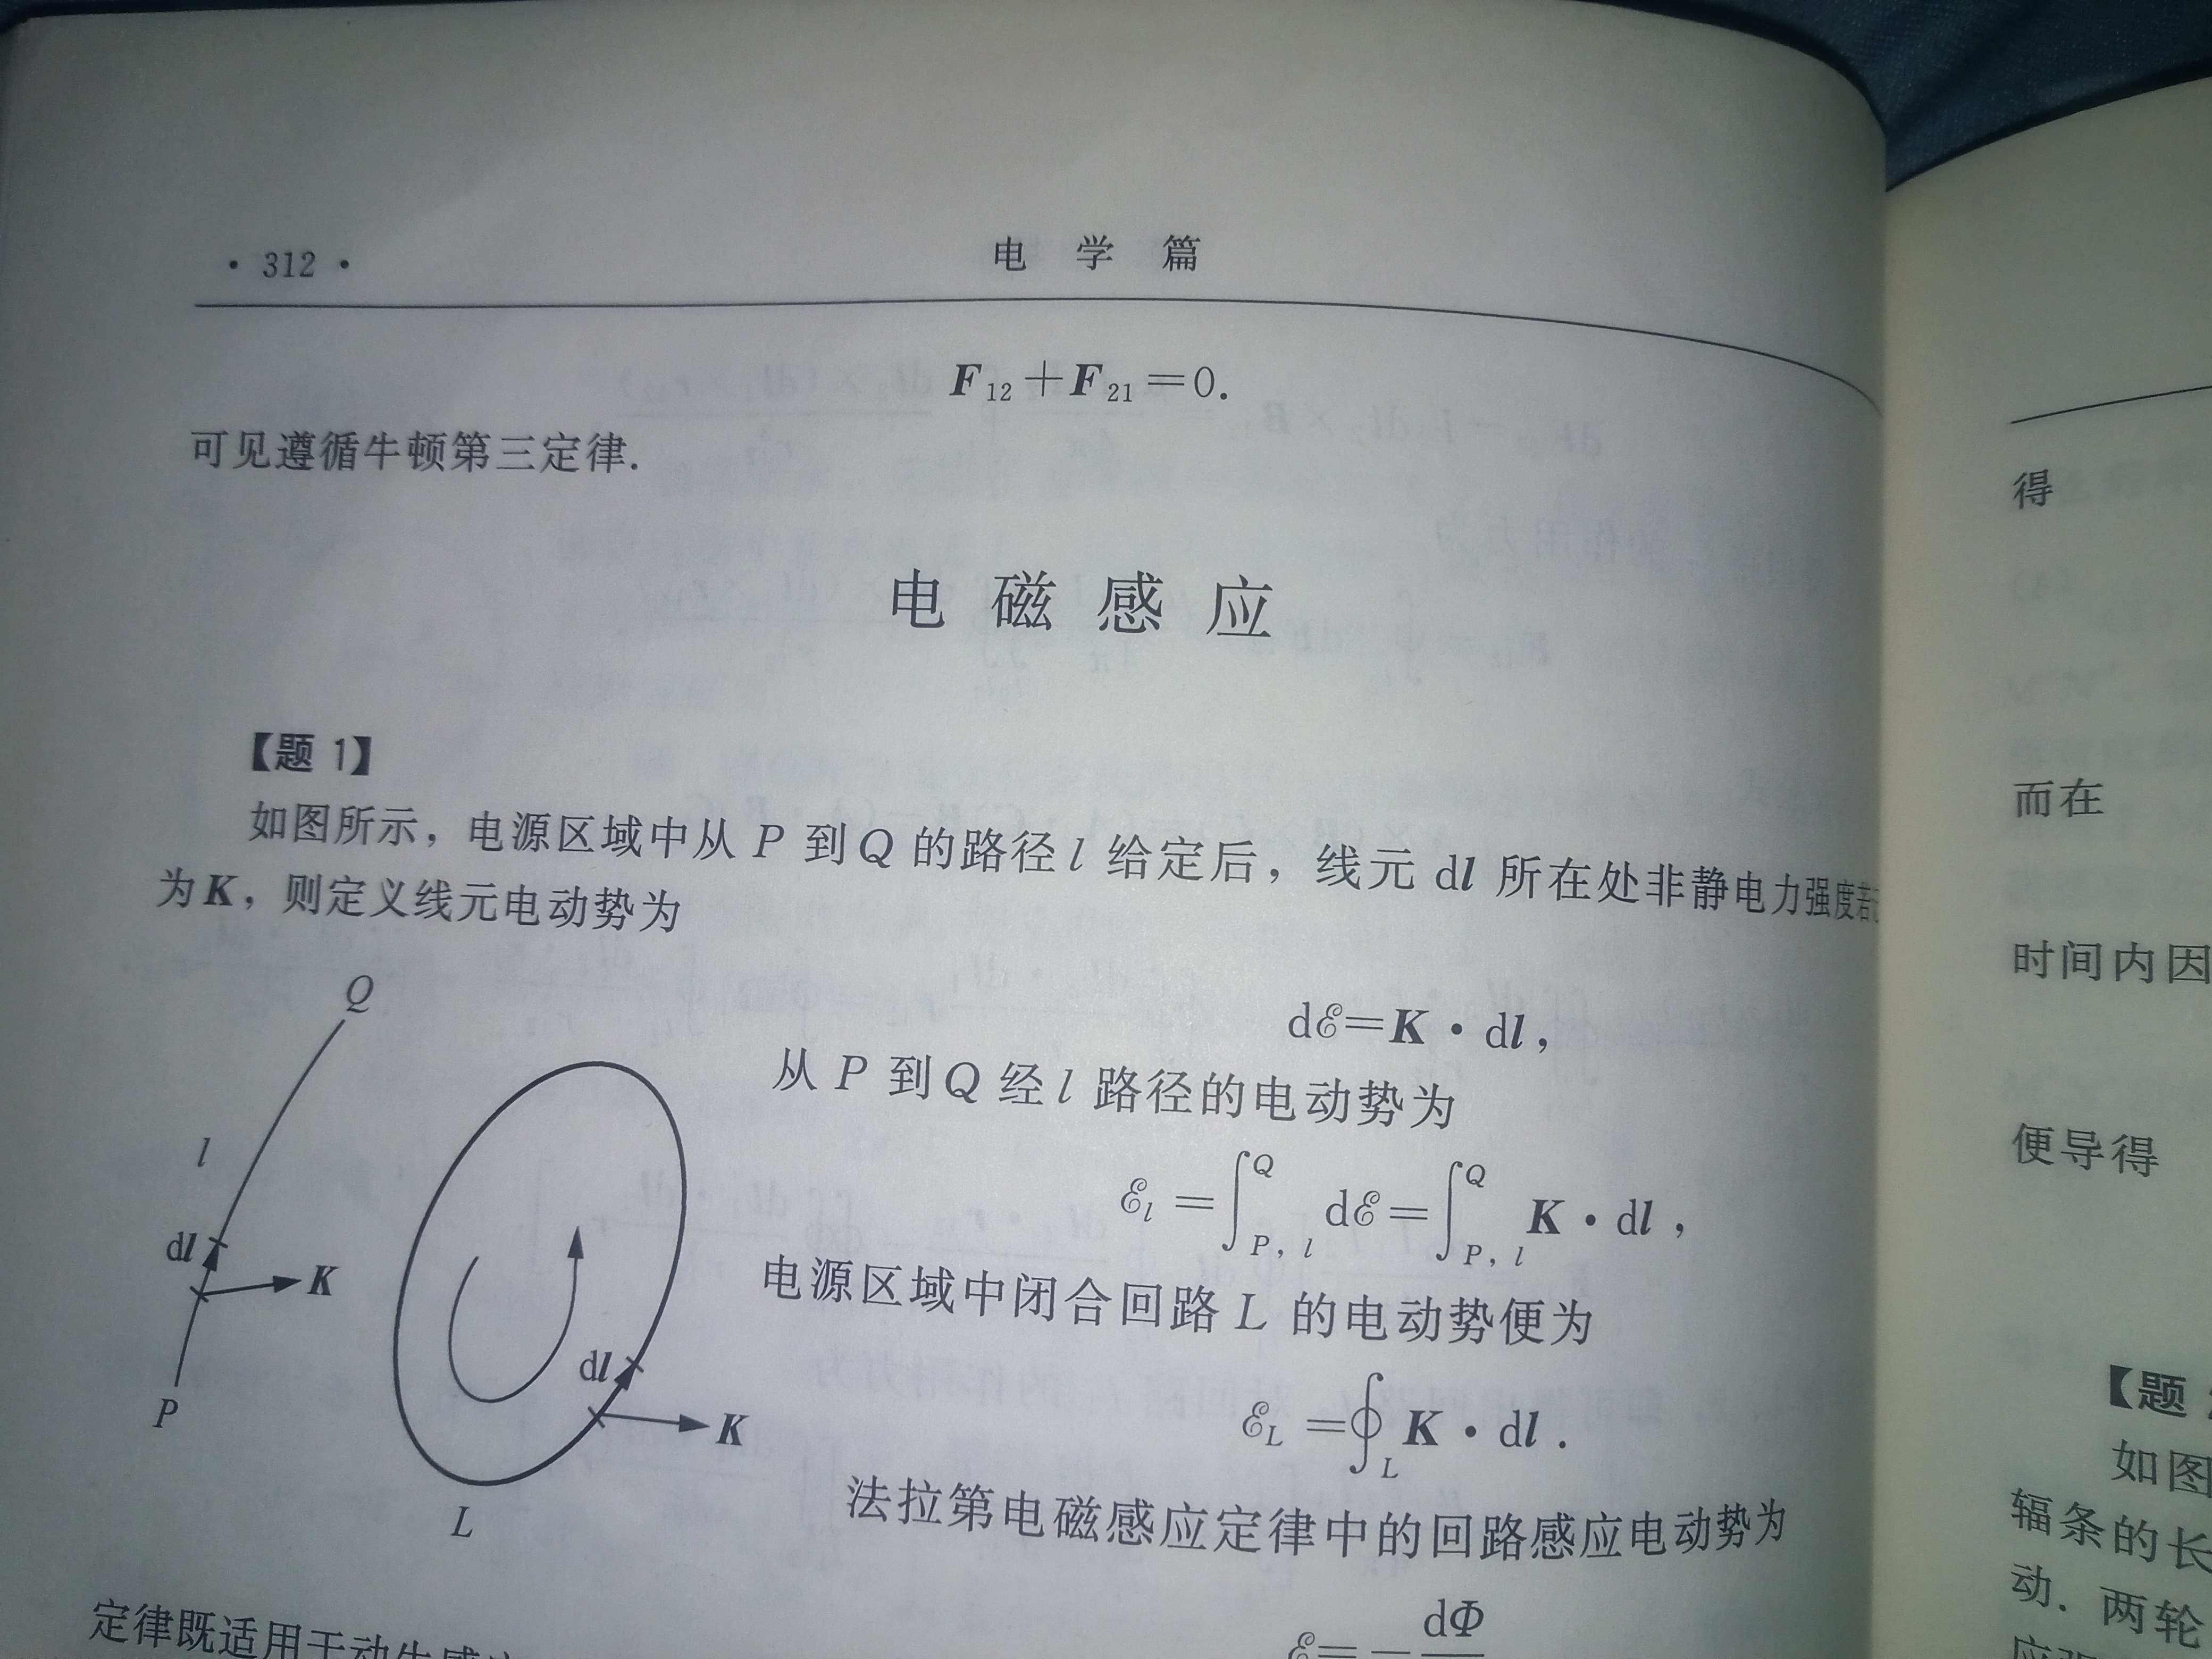 · 312 ·
电 学 篇
F₁₂+F₂₁=0.
可见遵循牛顿第三定律.
电 磁 感 应
【题 1】
如图所示，电源区域中从 P 到 Q 的路径 l 给定后，线元 dl 所在处非静电力强度若
为 K，则定义线元电动势为
dℰ=K·dl，
从 P 到 Q 经 l 路径的电动势为
ℰ_l=∫_{P, l}^{Q} dℰ=∫_{P, l}^{Q} K·dl，
电源区域中闭合回路 L 的电动势便为
ℰ_L=∮_L K·dl.
法拉第电磁感应定律中的回路感应电动势为
ℰ=-dΦ
定律既适用于动生感应
Q
l
dl
K
P
dl
K
L
得
而在
时间内因
便导得
【题
如图
辐条的长
动. 两轮